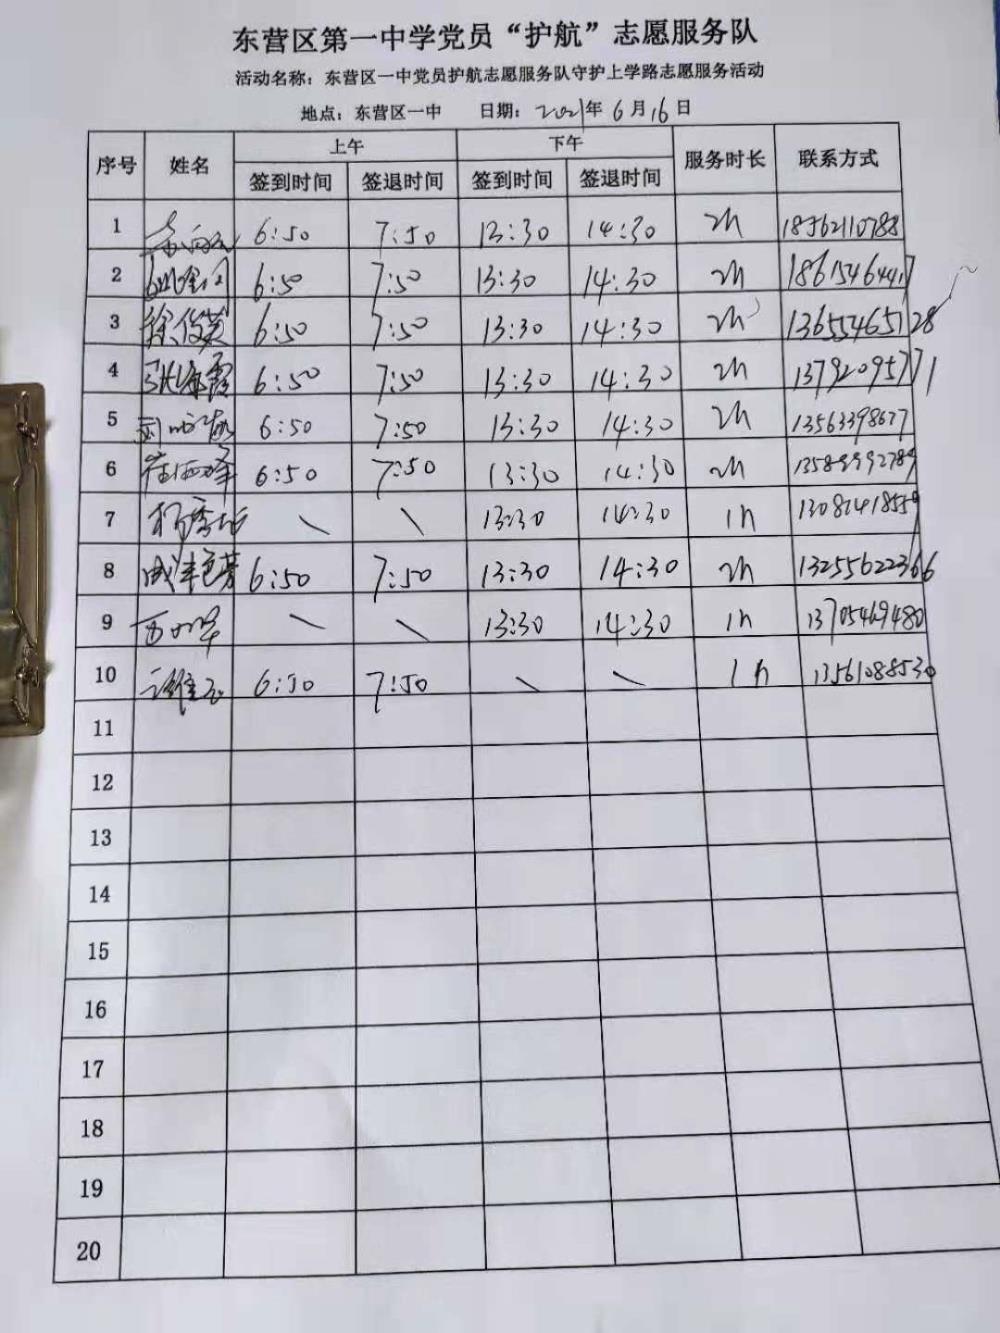 东营区第一中学党员“护航”志愿服务队
活动名称：东营区一中党员护航志愿服务队守护上学路志愿服务活动
地点：东营区一中 日期：2021年6月16日
序号 姓名 上午 下午 服务时长 联系方式
签到时间 签退时间 签到时间 签退时间
1 6:50 7:50 13:30 14:30 2h 18562110788
2 6:50 7:50 13:30 14:30 2h 18615464417
3 徐俊英 6:50 7:50 13:30 14:30 2h 13655465128
4 张海霞 6:50 7:50 13:30 14:30 2h 13792095771
5 6:50 7:50 13:30 14:30 2h 13563398677
6 6:50 7:50 13:30 14:30 2h 13589992789
7 \ \ 13:30 14:30 1h
8 6:50 7:50 13:30 14:30 2h 13255622366
9 \ \ 13:30 14:30 1h 13705469480
10 6:50 7:50 \ \ 1h 13561088530
11
12
13
14
15
16
17
18
19
20